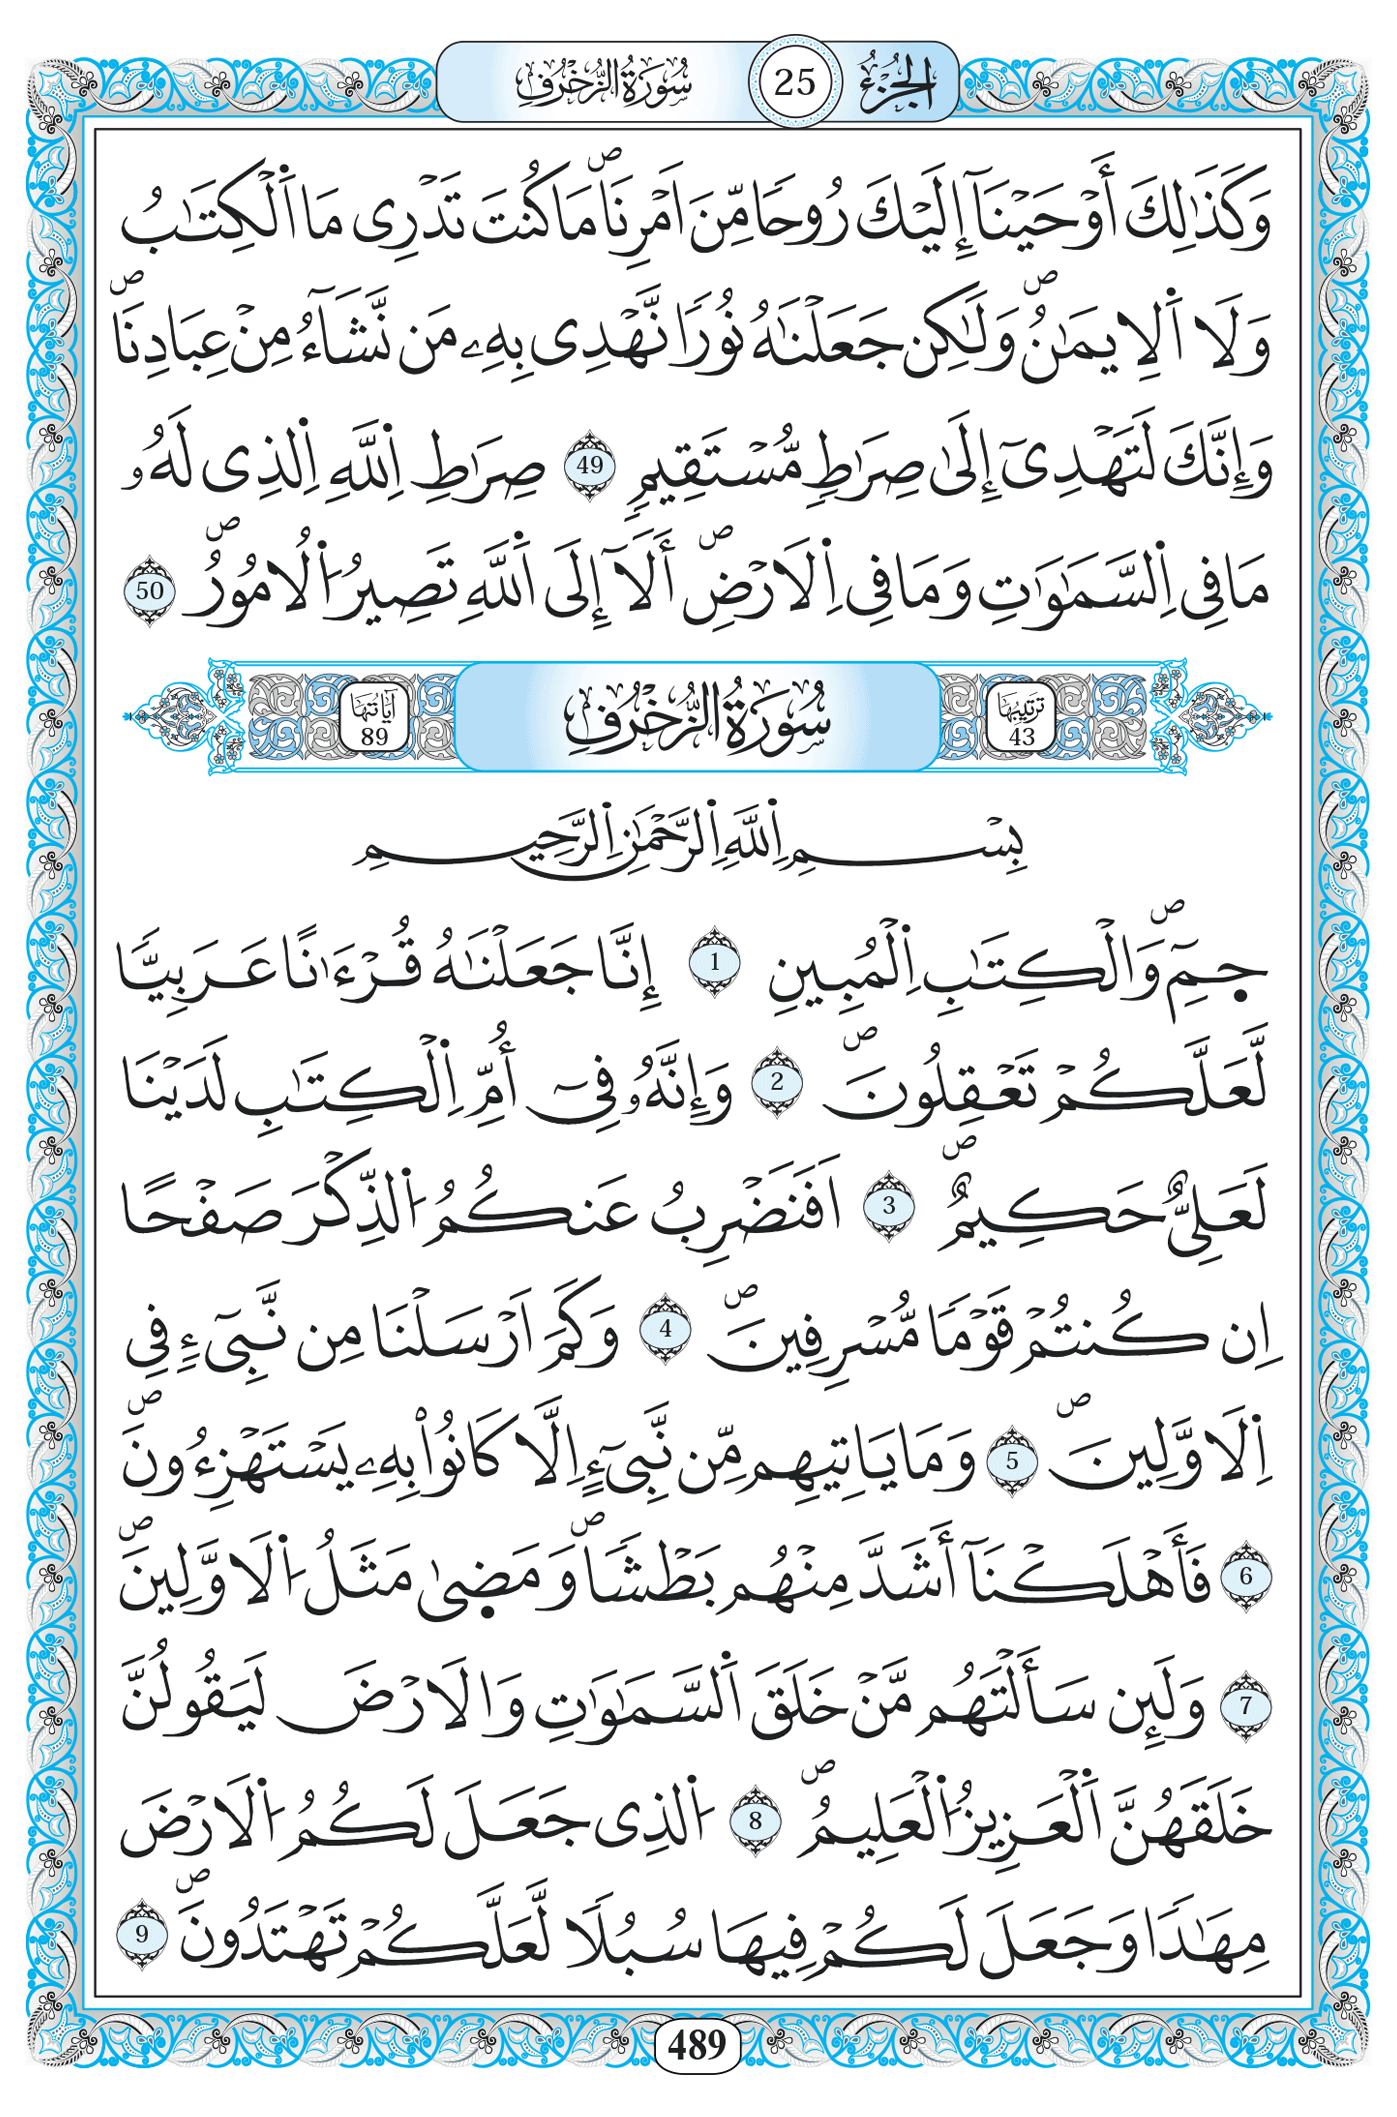 الجزء 25 سورة الزخرف
وَكَذَٰلِكَ أَوْحَيْنَآ إِلَيْكَ رُوحًا مِّنَ اَمْرِنَاۖ مَا كُنتَ تَدْرِى مَا اَ۬لْكِتَٰبُ
وَلَا اَ۬لِايمَٰنُۖ وَلَٰكِن جَعَلْنَٰهُ نُورًا نَّهْدِى بِهِۦ مَن نَّشَآءُ مِنْ عِبَادِنَاۖ
وَإِنَّكَ لَتَهْدِىٓ إِلَىٰ صِرَٰطٍ مُّسْتَقِيمٍ 49 صِرَٰطِ اِ۬للَّهِ اِ۬لذِى لَهُۥ
مَا فِى اِ۬لسَّمَٰوَٰتِ وَمَا فِى اِ۬لَارْضِۖ أَلَآ إِلَى اَ۬للَّهِ تَصِيرُ اُ۬لُامُورُۖ 50
ترتيبها 43 سورة الزخرف آياتها 89
بِسْمِ اِ۬للَّهِ اِ۬لرَّحْمَٰنِ اِ۬لرَّحِيمِ
حمٓۖ وَالْكِتَٰبِ اِ۬لْمُبِينِ 1 إِنَّا جَعَلْنَٰهُ قُرْءَٰنًا عَرَبِيًّا
لَّعَلَّكُمْ تَعْقِلُونَۖ 2 وَإِنَّهُۥ فِىٓ أُمِّ اِ۬لْكِتَٰبِ لَدَيْنَا
لَعَلِىٌّ حَكِيمٌۖ 3 اَفَنَضْرِبُ عَنكُمُ اُ۬لذِّكْرَ صَفْحًا
اِن كُنتُمْ قَوْمًا مُّسْرِفِينَۖ 4 وَكَمَ اَرْسَلْنَا مِن نَّبِىٓءٍ فِى
اِ۬لَاوَّلِينَۖ 5 وَمَا يَاتِيهِم مِّن نَّبِىٓءٍ اِلَّا كَانُواْ بِهِۦ يَسْتَهْزِءُونَۖ
6 فَأَهْلَكْنَآ أَشَدَّ مِنْهُم بَطْشًاۖ وَمَضىٰ مَثَلُ اُ۬لَاوَّلِينَۖ
7 وَلَئِن سَأَلْتَهُم مَّنْ خَلَقَ اَ۬لسَّمَٰوَٰتِ وَالَارْضَ لَيَقُولُنَّ
خَلَقَهُنَّ اَ۬لْعَزِيزُ اُ۬لْعَلِيمُۖ 8 اُ۬لذِى جَعَلَ لَكُمُ اُ۬لَارْضَ
مِهَٰدًا وَجَعَلَ لَكُمْ فِيهَا سُبُلًا لَّعَلَّكُمْ تَهْتَدُونَۖ 9
489